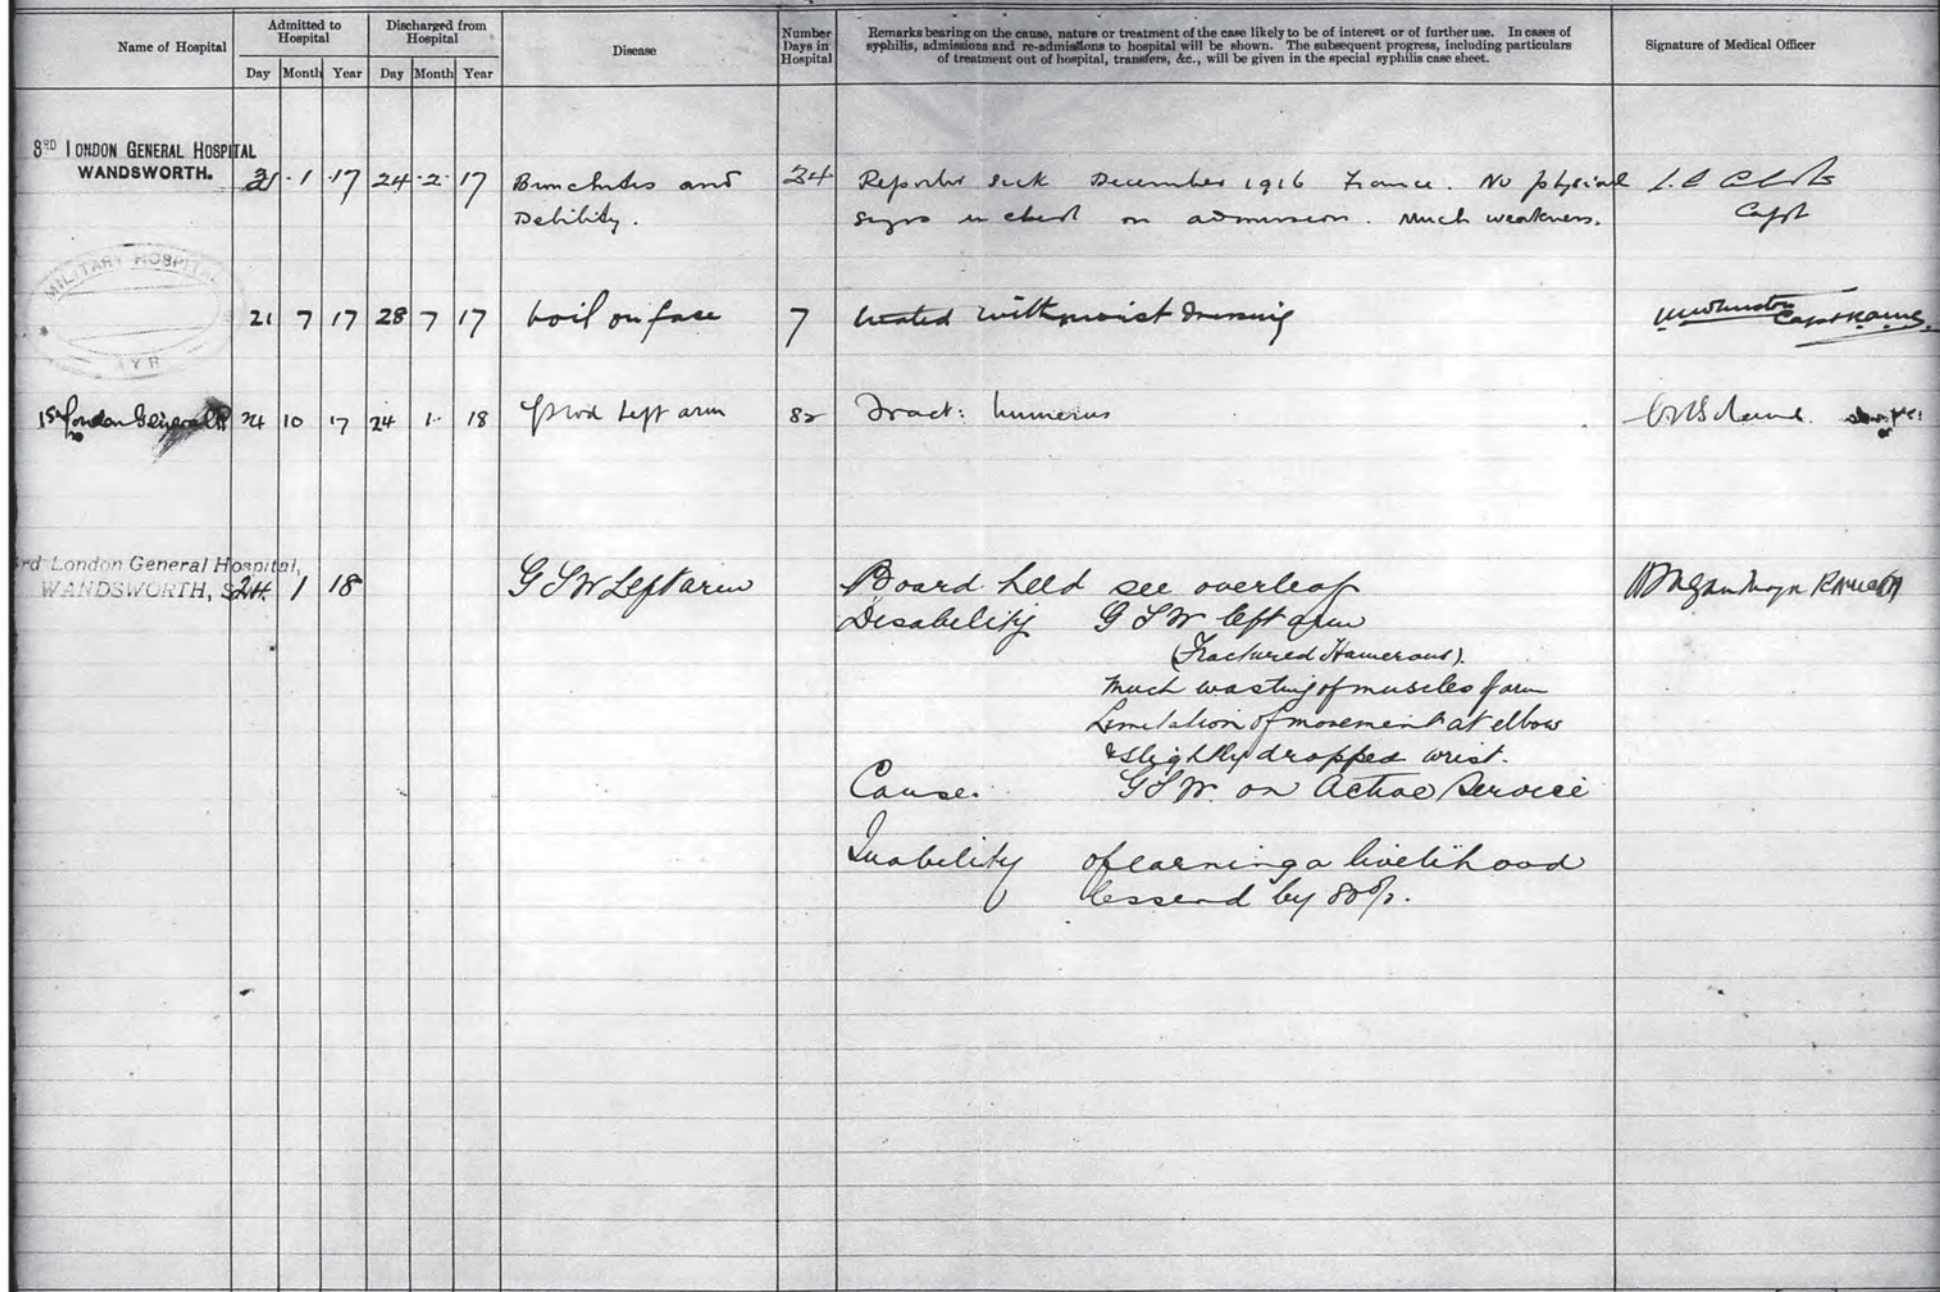 Name of Hospital
Admitted to Hospital
Discharged from Hospital
Disease
Number Days in Hospital
Remarks bearing on the cause, nature or treatment of the case likely to be of interest or of further use. In cases of
syphilis, admissions and re-admissions to hospital will be shown. The subsequent progress, including particulars
of treatment out of hospital, transfers, &c., will be given in the special syphilis case sheet.
Signature of Medical Officer
Day Month Year Day Month Year
3RD LONDON GENERAL HOSPITAL
WANDSWORTH.
1 17 24 2 17 Bronchitis and 34 Reported sick December 1916 France. No physical
Debility. signs in chest on admission. Much weakness. Capt
MILITARY HOSPITAL
AYR
21 7 17 28 7 17 boil on face 7 treated with moist dressing
1st London General 24 10 17 24 1 18 Left arm 82 Fract: humerus
3rd London General Hospital,
WANDSWORTH, S 24 1 18 GSW Left arm Board held see overleaf
Disability GSW left arm
(Fractured Humerous).
Much wasting of muscles of arm
Limitation of movement at elbow
& slightly dropped wrist.
Cause. GSW. on Active Service
Inability of earning a livelihood
lessend by 80%.